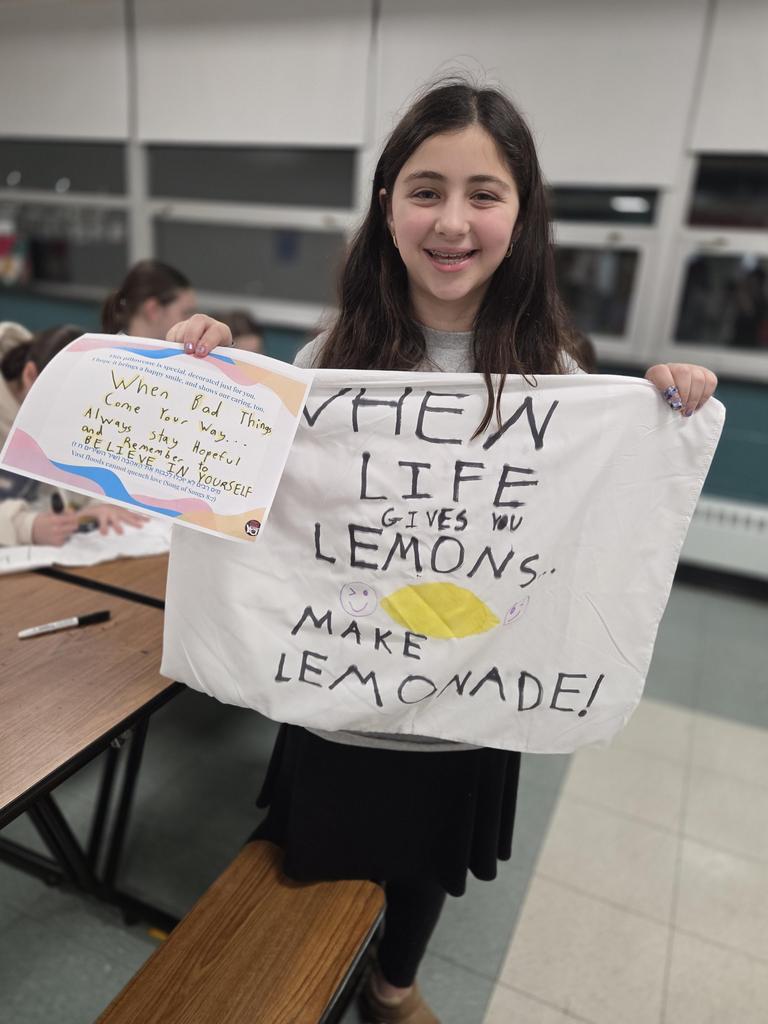 This pillowcase is special, decorated just for you.
I hope it brings a happy smile, and shows our caring, too.
When Bad Things
Come Your Way...
Always stay Hopeful
and Remember to
BELIEVE IN YOURSELF
מים רבים לא יוכלו לכבות את האהבה (שיר השירים ח ז)
Vast floods cannot quench love (Song of Songs 8:7)
WHEN
LIFE
GIVES YOU
LEMONS..
MAKE
LEMONADE!